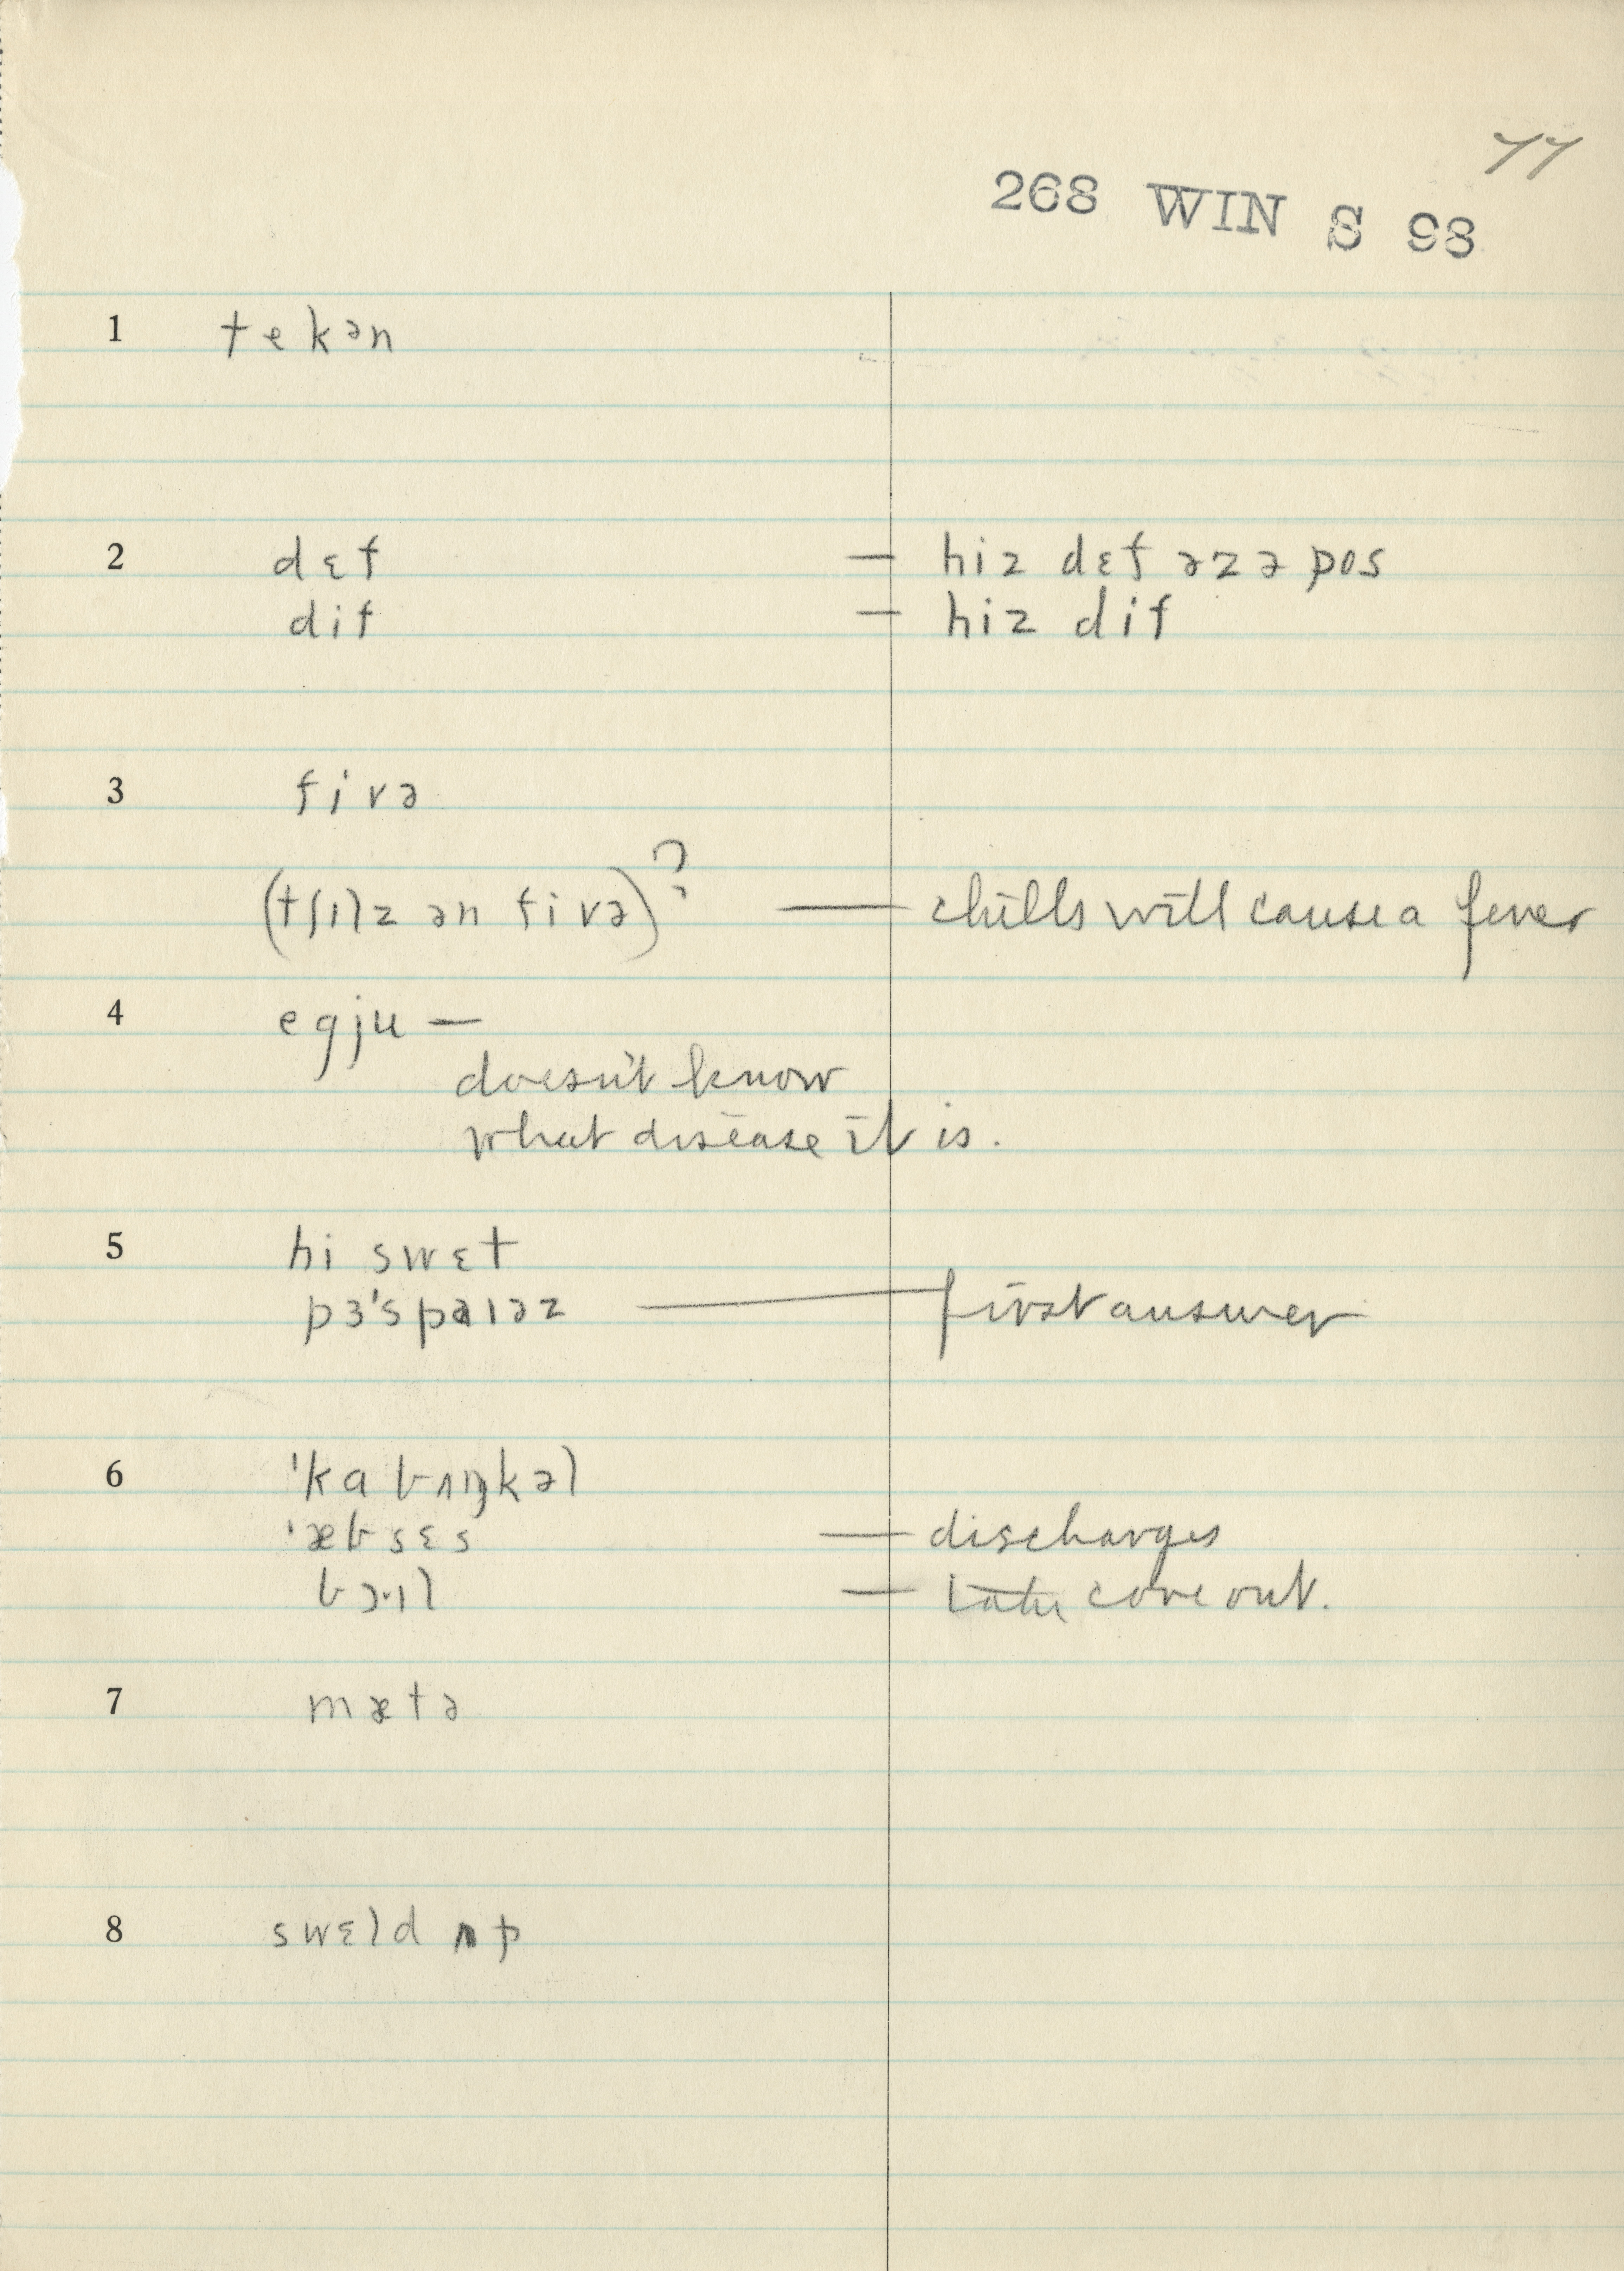 77
268 WIN S 98
1 tekən
2 dɛf — hiz dɛf əz ə pos
dif — hiz dif
3 fivə
(tʃɪlz ən fivə)? — chills will cause a fever
4 egju —
doesn't know
what disease it is.
5 hi swɛt
pɜ'spaɪəz — first answer
6 'kabʌŋkəl
'æbsɛs — discharges
bɔ·ɪl — core out.
7 mætə
8 swɛld ʌp